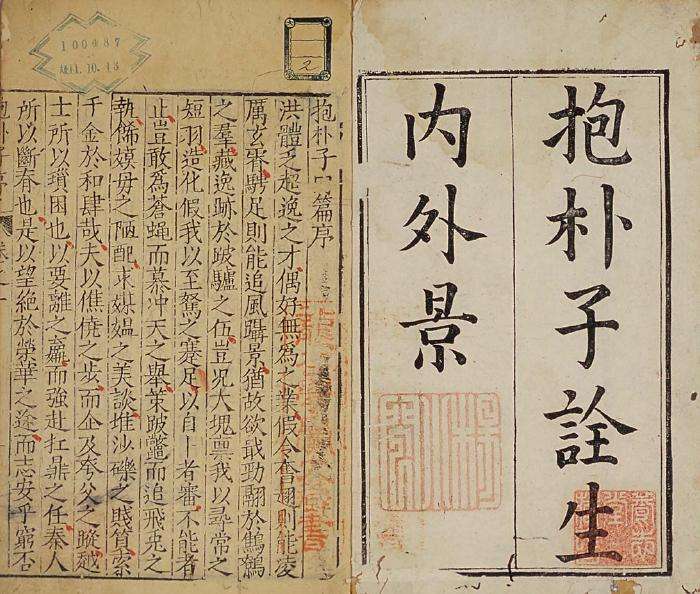 抱朴子詮生
内外景
抱朴子 篇序
洪體乏超逸之才偶好無為之業假令奮翅則能凌
厲玄霄騁足則能追風躡景猶故欲戢勁翮於鷦鷯
之羣藏逸跡於跛驢之伍豈况大塊禀我以尋常之
短羽造化假我以至駑之蹇足以自卜者審不能者
止豈敢為蒼蝇而慕冲天之舉策跛鼈而追飛兔之
軌飾嫫母之陋配求媒媼之美談堆沙礫之賤質索
千金於和肆哉夫以僬僥之步而企及夸父之蹤越
士所以瑣困也以要離之羸而強赴扛鼎之任秦人
所以斷脊也是以望絕於榮華之途而志安乎窮否
抱朴子序
100487
昭11.10.13
2